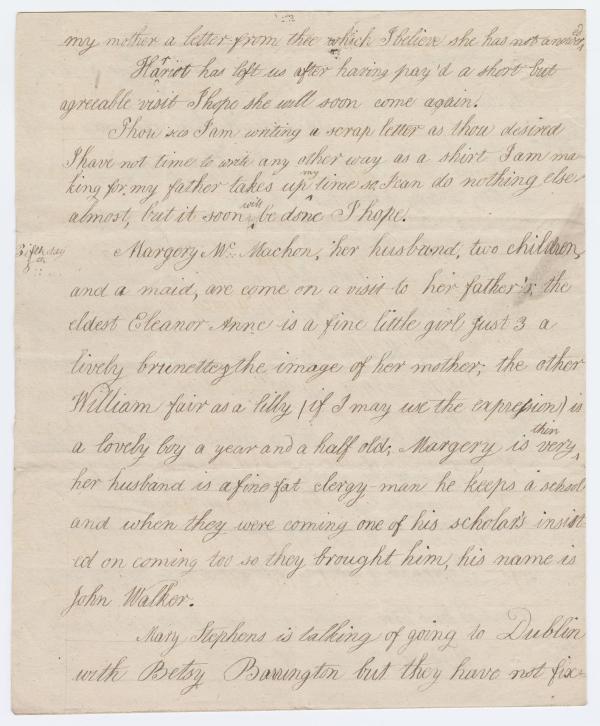 my mother a letter from thee which I believe she has not answered,
Harriot has left us after having pay'd a short but
agreeable visit I hope she will soon come again.
Thou sees I am writing a scrap letter as thou desired
I have not time to write any other way as a shirt I am ma-
king for my father takes up my time so I can do nothing else
almost, but it soon will be done I hope.
5th day Margery Mc. Machon, her husband, two children,
and a maid, are come on a visit to her father's, the
eldest Eleanor Anne is a fine little girl just 3 a
lively brunette, the image of her mother; the other
William fair as a lilly (if I may use the expression) is
a lovely boy a year and a half old; Margery is very thin
her husband is a fine fat clergy-man he keeps a school
and when they were coming one of his scholars insist
ed on coming too so they brought him, his name is
John Walker.
Mary Stephens is talking of going to Dublin
with Betsy Barrington but they have not fix-